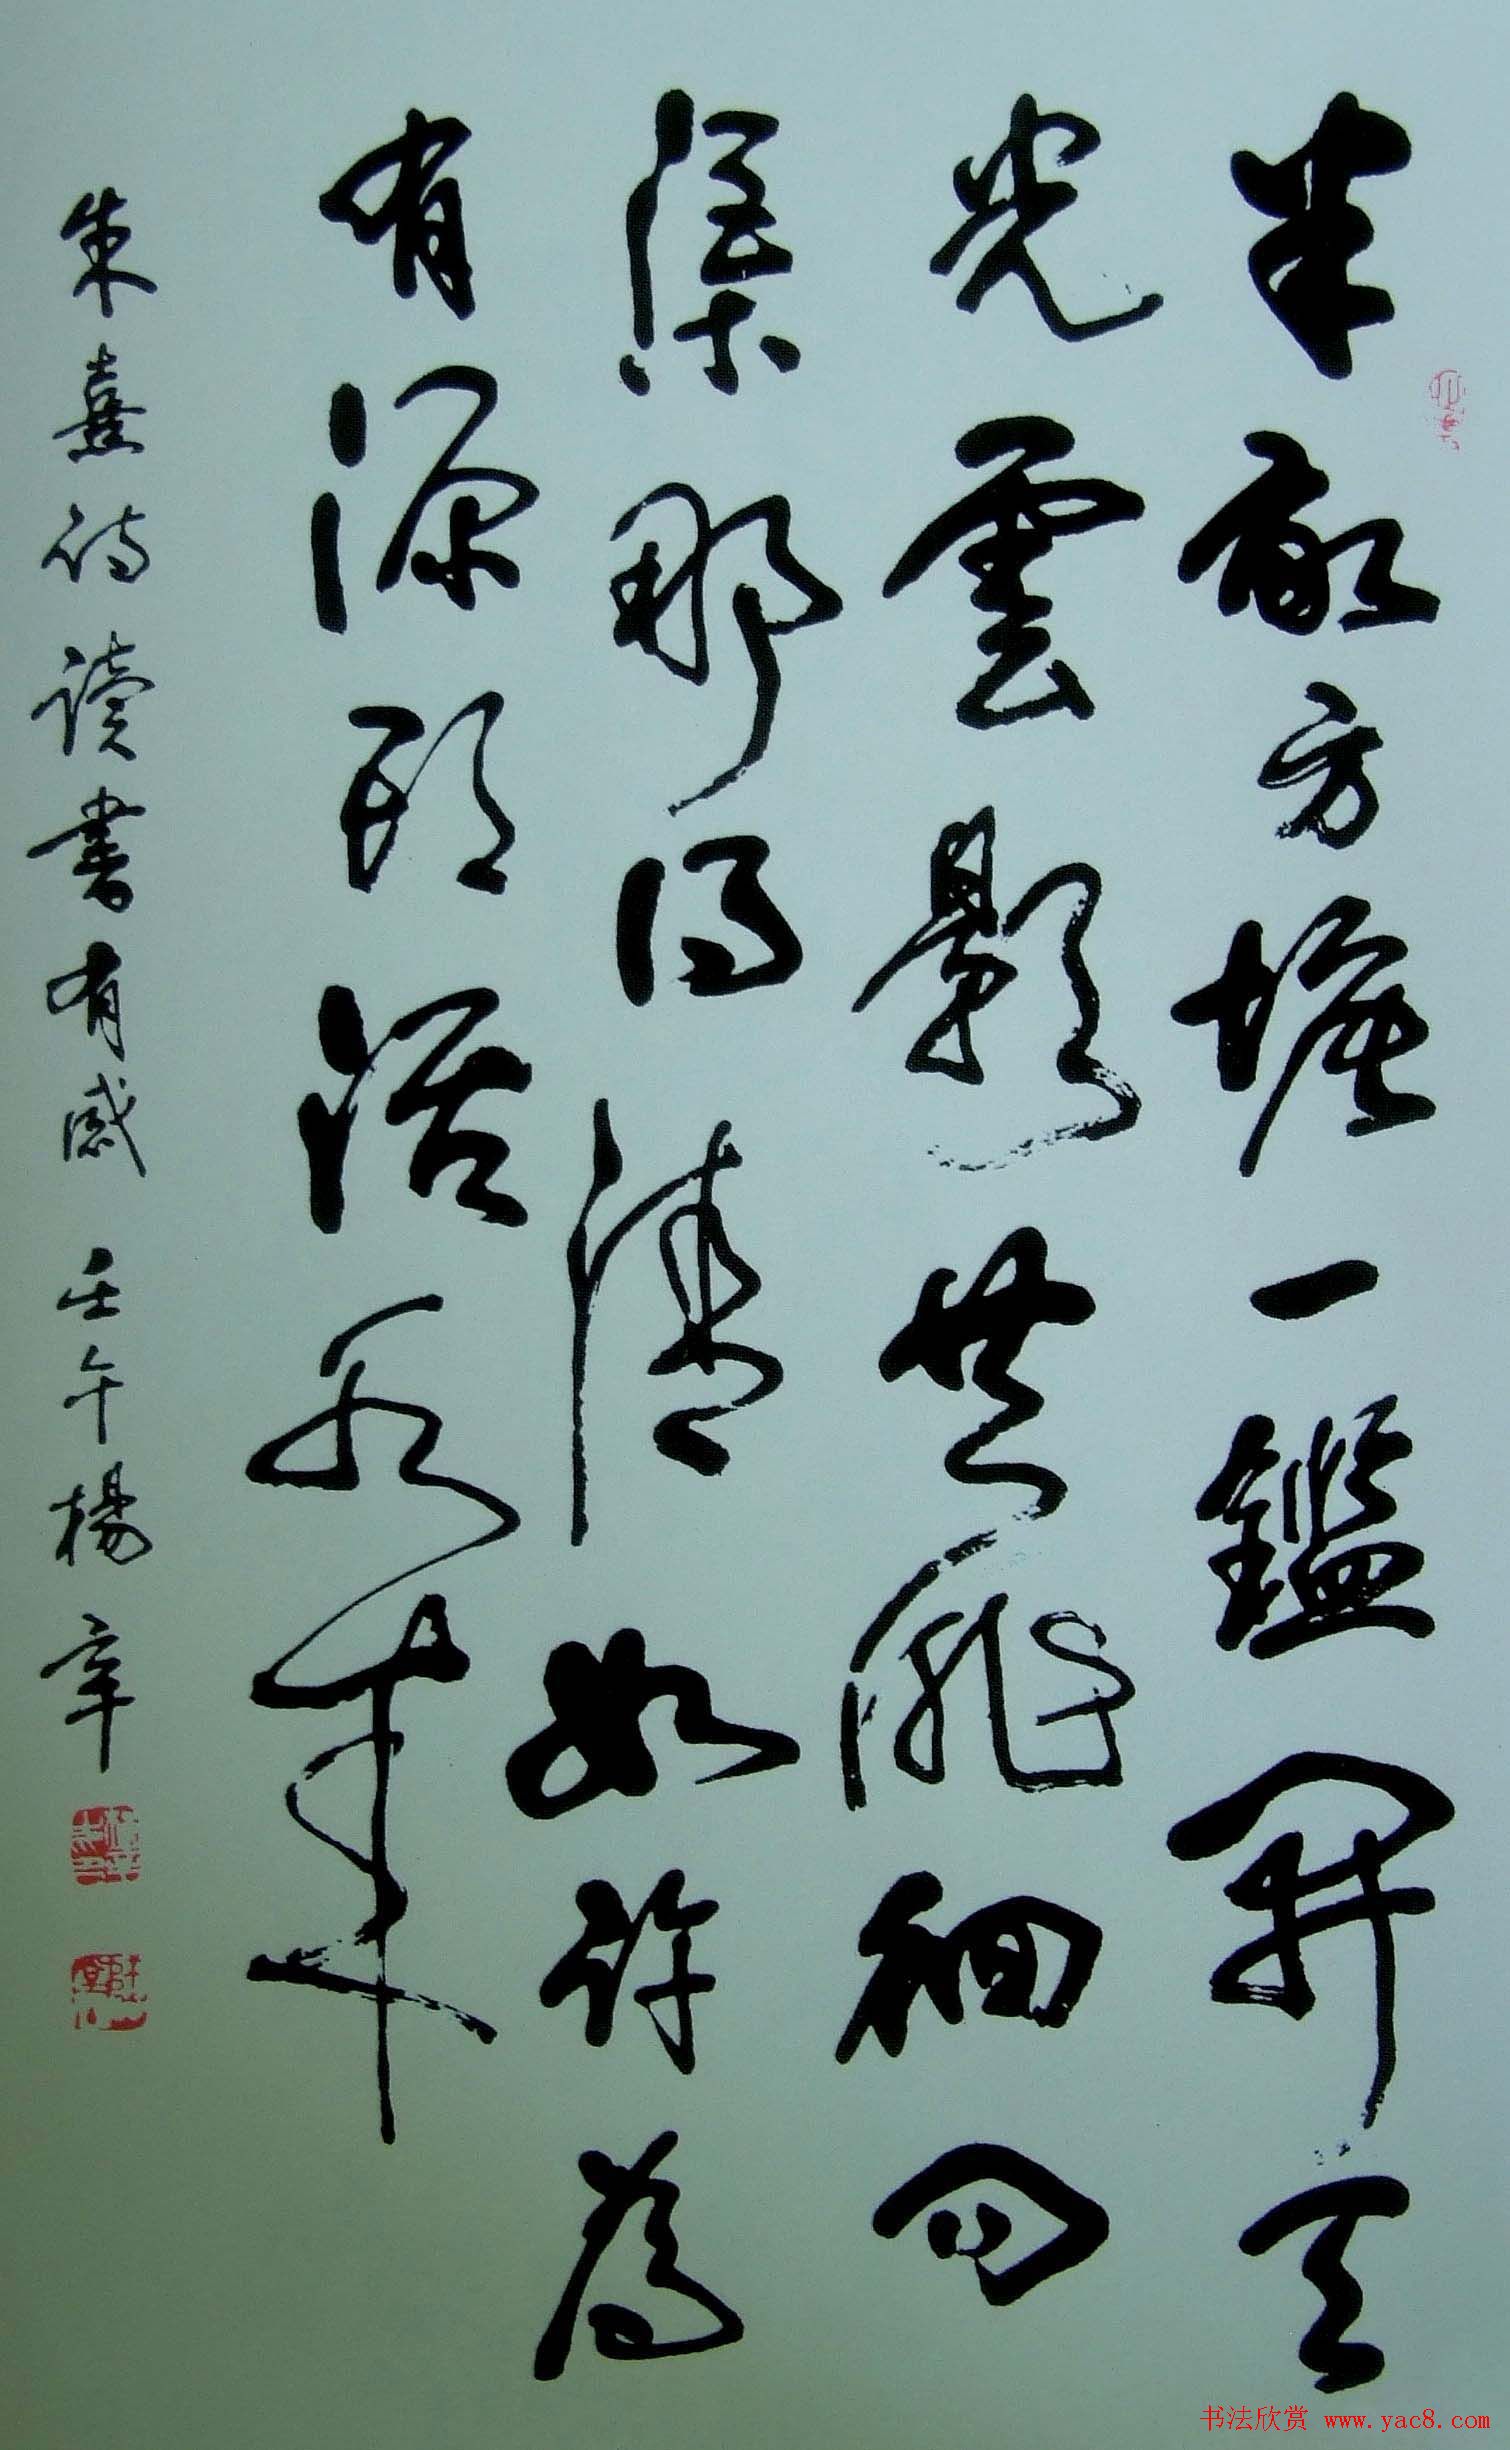 半畝方塘一鑑開天
光雲影共徘徊問
渠那得清如許為
有源頭活水來
朱熹詩讀書有感 壬午楊章
书法欣赏 www.yac8.com